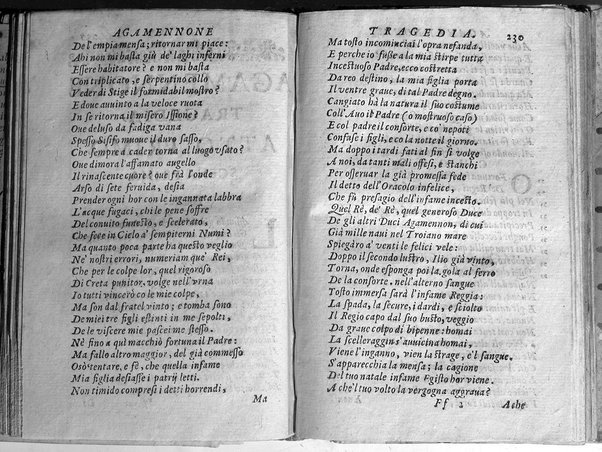 AGAMENNONE
De l'empia mensa; ritornar mi piace:
Ahi non mi basta giù de' laghi inferni
Essere habitatore? e non mi basta
Con triplicato, e serpentino collo
Veder di Stige il formidabil mostro?
E doue auuinto a la veloce ruota
In se ritorna il misero Issione?
Oue deluso da fadiga vana
Spesso Sisifo muoue il duro sasso,
Che sempre à cader torna al luogo vsato?
Oue dimora l'affamato augello
Il rinascente cuore? que frà l'onde
Arso di sete feruida, desia
Prender ogni hor con le ingannata labbra
L'acque fugaci, chi le pene soffre
Del conuito funesto, e scelerato,
Che fece in Cielo a' sempiterni Numi?
Ma quanto poca parte ha questo veglio
Ne' nostri errori, numeriam que' Rei,
Che per le colpe lor, quel rigoroso
Di Creta punitor, volge nell'vrna
Io tutti vincerò co le mie colpe,
Ma son dal fratel vinto; e tomba sono
De miei tre figli estinti in me sepolti,
De le viscere mie pascei me stesso.
Nè fino a quì macchiò fortuna il Padre:
Ma fallo altro maggior, del già commesso
Osò tentare, e fè, che quella infame
Mia figlia desiasse i patrij letti.
Non timido compresi i detti horrendi,
Ma
TRAGEDIA. 230
Ma tosto incominciai l'opra nefanda,
E perche io fussi a la mia stirpe tutta
Incestuoso Padre, ecco costretta
Da reo destino, la mia figlia porta
Il ventre graue, di tal Padre degno.
Cangiato hà la natura il suo costume
Coll'Auo il Padre (o mostruoso caso)
E col padre il consorte, e co' nepoti
Confuse i figli, e co la notte il giorno.
Ma doppo i tardi fati al fin si volge
A noi, da tanti mali offesi, e stanchi
Per osseruar la già promessa fede
Il detto dell'Oracolo infelice,
Che fù presagio dell'infame incesto.
Quel Rè, de' Rè, quel generoso Duce
De gli altri Duci Agamennon, di cui
Già mille naui nel Troiano mare
Spiegaro a' venti le felici vele:
Doppo il secondo lustro, Ilio già vinto,
Torna, onde esponga poi la gola al ferro
De la consorte. nell'alterno sangue
Tosto immersa sarà l'infame Reggia:
La spada, la secure, i dardi, e sciolto
Il Regio capo dal suo busto, veggio
Da graue colpo di bipenne: homai
La scelleraggin s'auuicina homai,
Viene l'inganno, vien la strage, e'l sangue.
S'apparecchia la mensa; la cagione
Del tuo natale infame Egisto hor viene.
A che'l tuo volto la vergogna aggraua?
Ff 2 A che